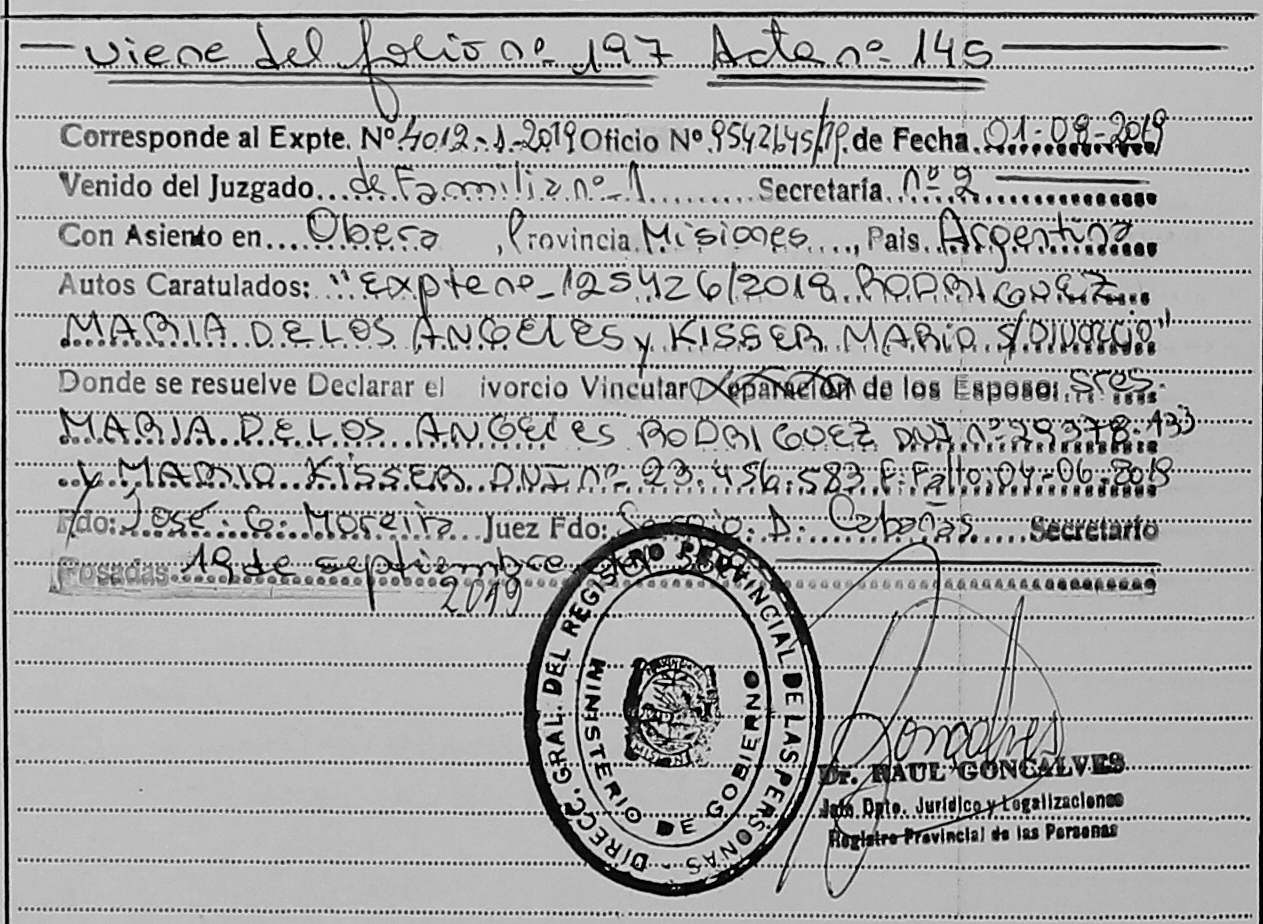 viene del folio nº 197 Acta nº 145
Corresponde al Expte. Nº 4012-1-2019 Oficio Nº 9542645/19. de Fecha 01-08-2019
Venido del Juzgado de Familia nº 1 Secretaría nº 2
Con Asiento en Obera, Provincia Misiones, Pais Argentina
Autos Caratulados: "Expte nº 125426/2018 RODRIGUEZ
MARIA DE LOS ANGELES y KISSER MARIO S/DIVORCIO"
Donde se resuelve Declarar el ivorcio Vincular Separación de los Esposo: Sres.
MARIA DE LOS ANGELES RODRIGUEZ DNI nº 29.378.133
y MARIO KISSER DNI nº 23.456.583 F. Fallo: 04-06-2019
Fdo: José G. Moreira Juez Fdo: Sergio D. Cabañas Secretario
Posadas 19 de septiembre
2019
DIRECC. GRAL. DEL REGISTRO PROVINCIAL DE LAS PERSONAS
MINISTERIO DE GOBIERNO
Goncalves
Dr. RAUL GONCALVES
Jefe Dpto. Jurídico y Legalizaciones
Registro Provincial de las Personas